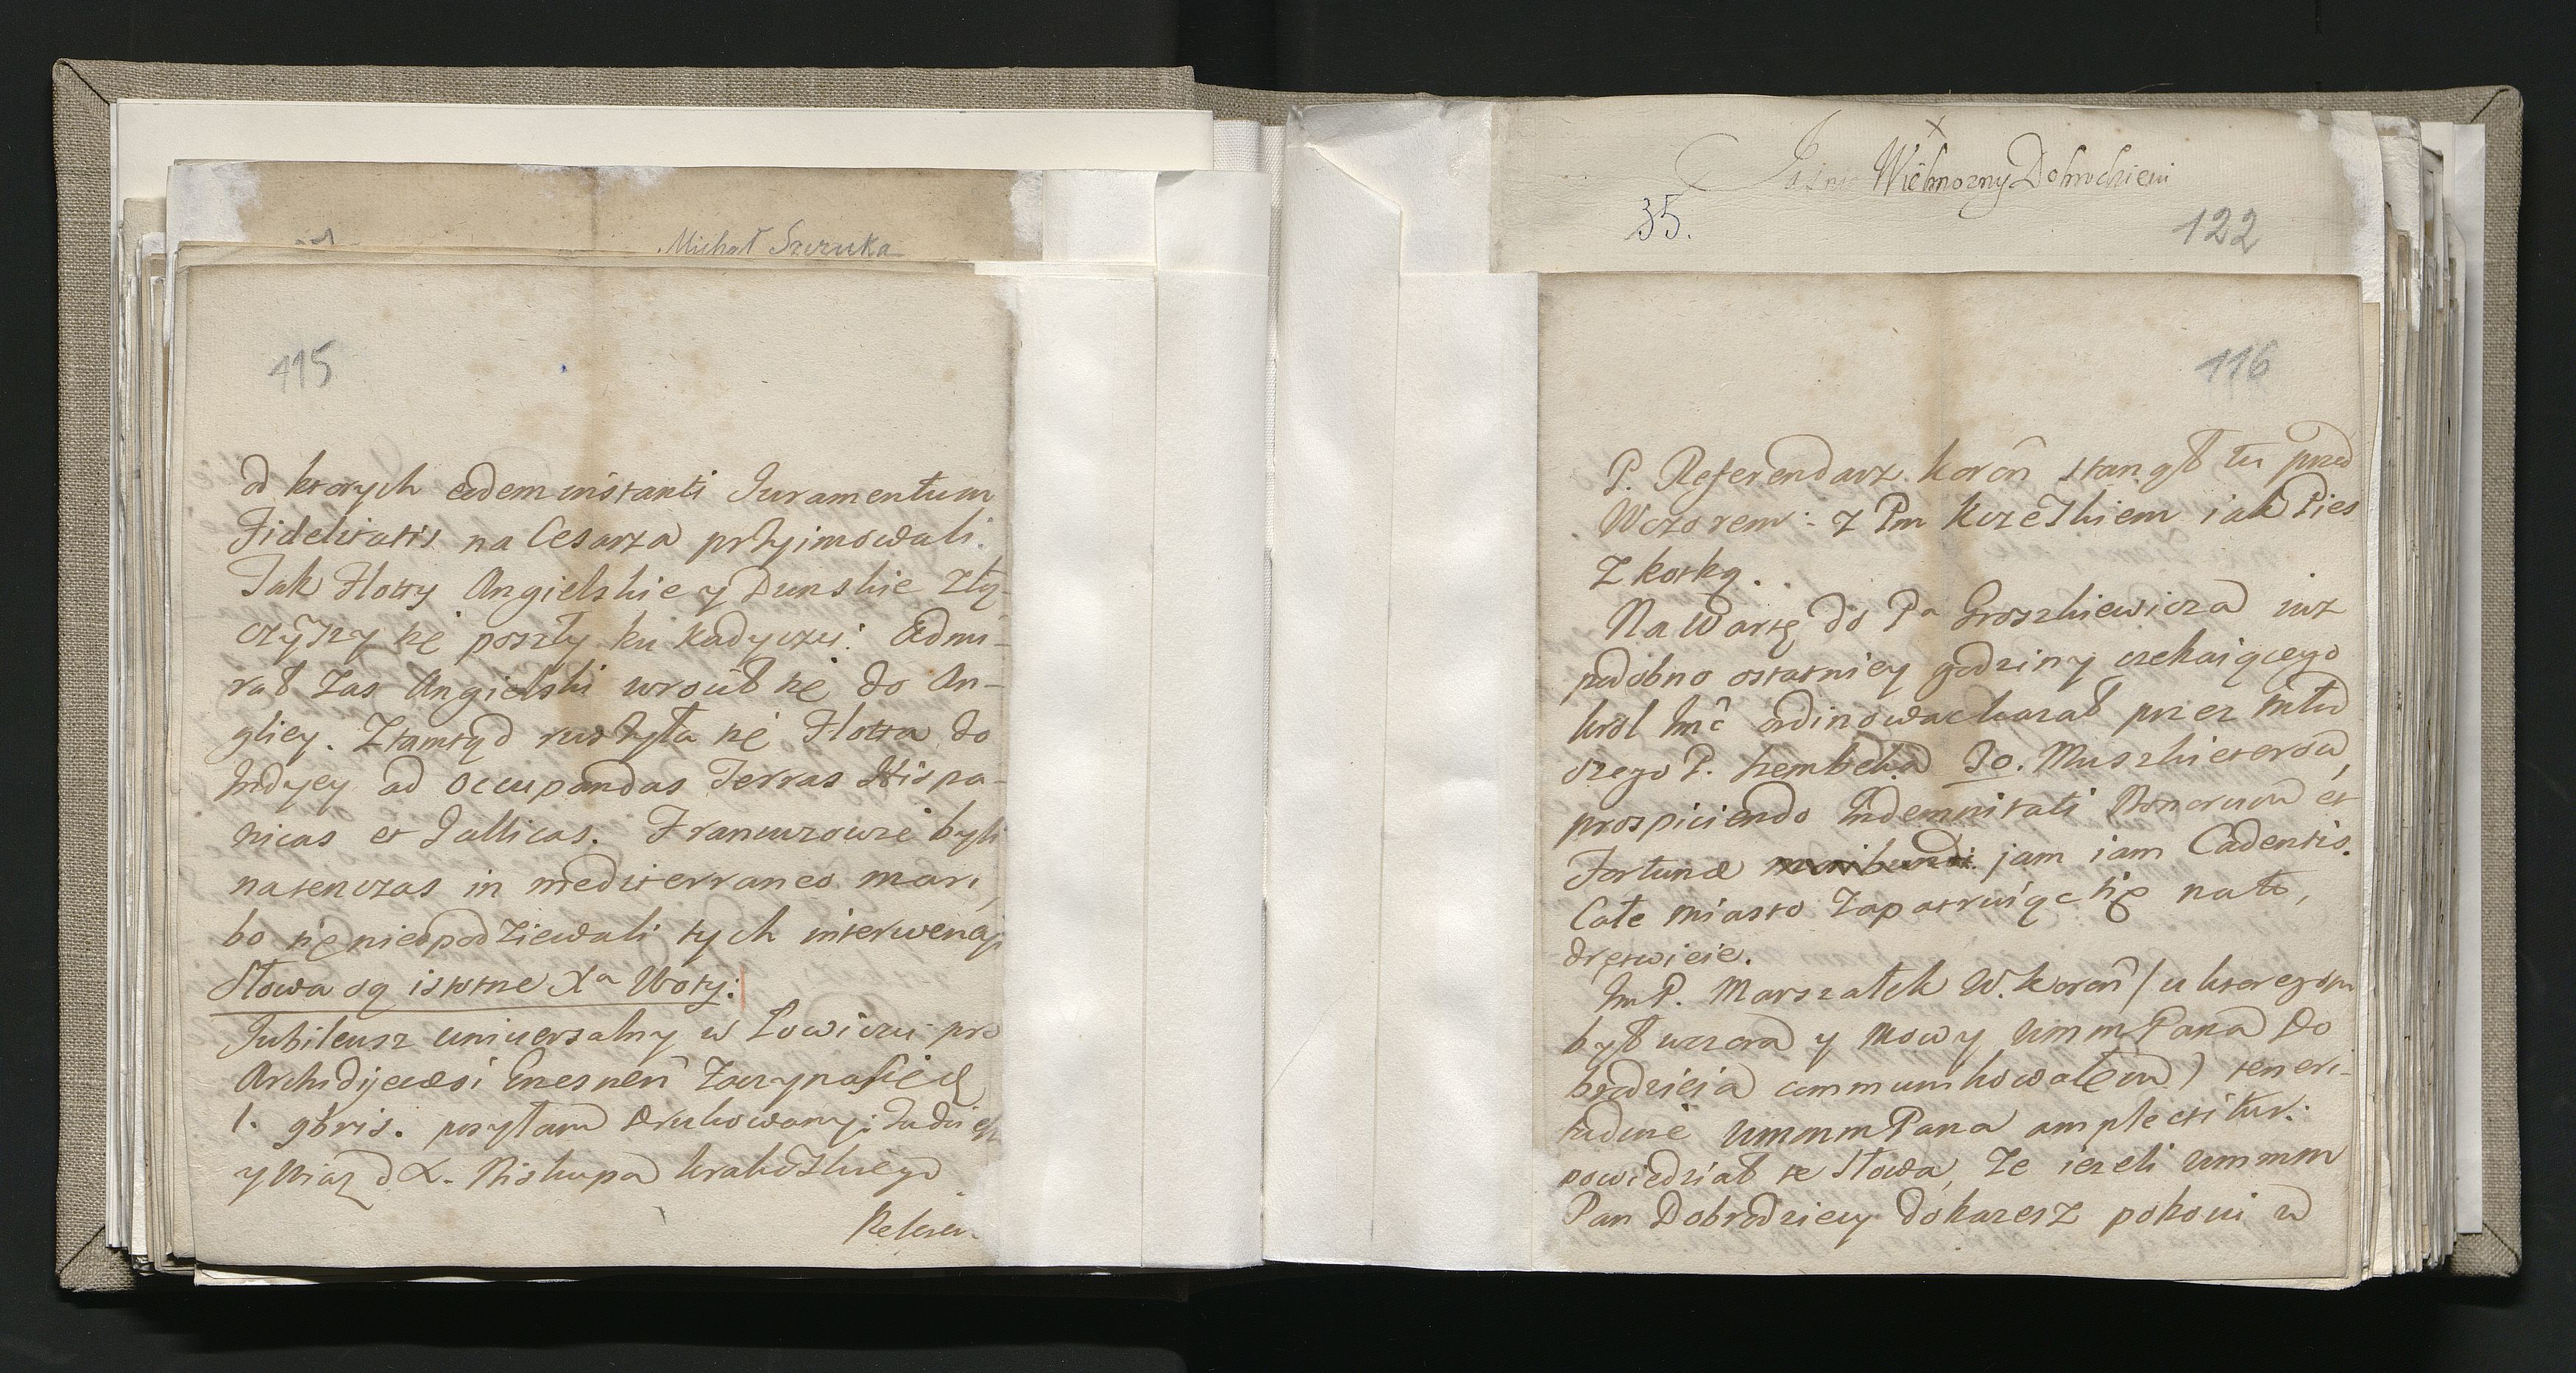 Michał Szczuka
115
od ktorych eodem instanti Juramentum
Fidelitatis na Cesarza przyimowali.
Tak Flotty Angielskie y Dunskie złą-
czywszy się poszły ku Kadyxu: Admi-
rał zas Angielski wrócił się do An-
gliey. Ztamtąd ruszyła się Flotta do
Indyey ad occupandas Terras Hispa-
nicas et Gallicas. Francuzowie byli
natenczas in mediterraneo mari,
bo się niespodziewali tych
Słowa są istotne Xa Woty:
Jubileusz uniuersalny w Łowiczu pro
Archidijecaesi Gnesnen zaczyna się d
1. 9bris. posyłam drukowany:
y Xiąząd X. Biskupa krakowskiego

Jasnie Wielmozny Dobrodzieiu
35.
122
116
P. Referendarz koron stanął tu przed
Wczorem: z Pm Rzewskiem iak Pies
z kotką.
Na Wartę do Pa Groszkiewicza iuz
podobno ostatniey godziny czekaiącego
krol Jmć ordinowac kazał przez młod
szego P. Szembeka 30. Muszkieterow,
prospiciendo Indemnitati Bonorum et
Fortunae moribundi jam iam Cadentis.
Całe miasto zapatruiąc się na to,
drętwieie.
Jm P. Marszałek W. koron / u ktoregom
był wczora y Mowy UmmPana Do
brodzieia communikowałem) teneri-
tudine UmmmPana amplectitur:
powiedział te słowa, ze iezeli Ummm
Pan Dobrodziey dokazesz pokoiu w